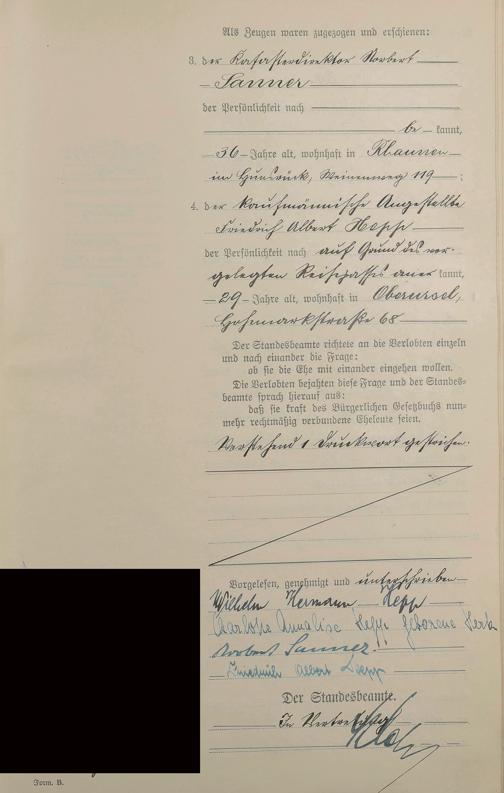 Als Zeugen waren zugezogen und erschienen:
3. der Katasterdirektor Norbert
Sanner
der Persönlichkeit nach
be kannt,
36 Jahre alt, wohnhaft in Rhaunen
im Hunsrück, 119;
4. der kaufmännische Angestellte
Friedrich Albert Hepp
der Persönlichkeit nach auf Grund des vor-
gelegten Reisepasses aner kannt,
29 Jahre alt, wohnhaft in Oberursel,
Hohmarkstraße 68
Der Standesbeamte richtete an die Verlobten einzeln
und nach einander die Frage:
ob sie die Ehe mit einander eingehen wollen.
Die Verlobten bejahten diese Frage und der Standes-
beamte sprach hierauf aus:
daß sie kraft des Bürgerlichen Gesetzbuchs nun-
mehr rechtmäßig verbundene Eheleute seien.
Vorstehend 1 Druckwort gestrichen.
Vorgelesen, genehmigt und unterschrieben
Wilhelm Hermann Hepp
Hepp geborene
Norbert Sanner
Friedrich Albert Hepp
Der Standesbeamte.
In Vertretung
Form. B.